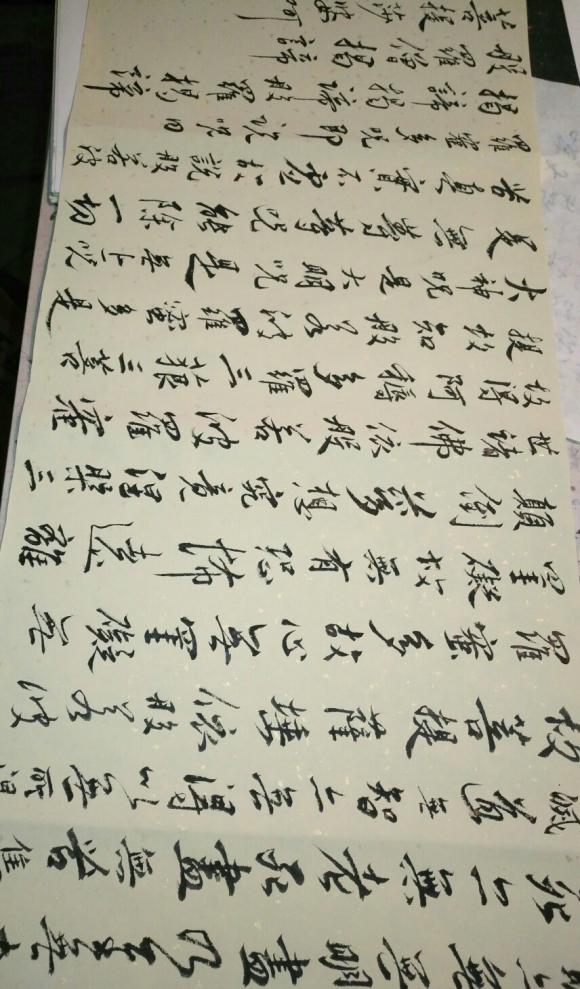 亦無無明盡乃至無老
死亦無老死盡無苦集
滅道無智亦無得以無所得
故菩提薩埵依般若波
羅蜜多故心無罣礙無
罣礙故無有恐怖遠離
顛倒夢想究竟涅槃三
世諸佛依般若波羅蜜
故得阿耨多羅三藐三菩
提故知般若波羅蜜多是
大神咒是大明咒是無上咒
是無等等咒能除一切
苦真實不虛故說般若波
羅蜜多咒即說咒曰
揭諦揭諦般羅揭諦
般羅僧揭諦
菩提莎婆呵